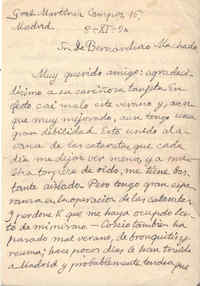 Gral Martínez Campos 15
Madrid
Sr. D. Bernardino Machado
Muy querido amigo: agradeci-
dísimo a su cariñosa tarjeta. En
efecto caí malo este verano y, aun-
que muy mejorado, aun tengo una
gran debilidad. Esto unido al a-
vance de las cataratas que cada
día me dejan ver menos, y a mi
torpeza de oído, me tiene bas-
tante aislado. Pero tengo gran espe-
ranza en la operación de las cataratas.
Y perdone V. que me haya ocupado tan-
to de mí mismo — Cossío también ha
pasado mal verano, de bronquitis y
reuma; hace pocos días le han traído
a Madrid y probablemente tendrá que